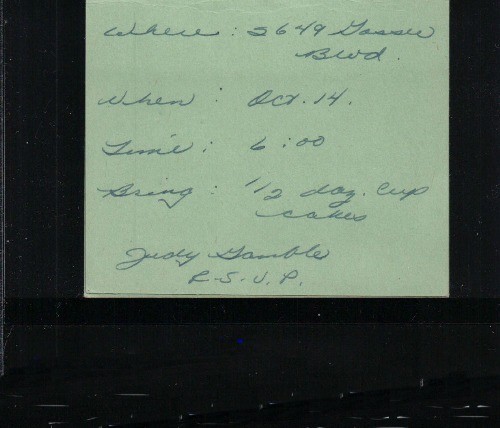 Where : 5649 Gosser
Blvd.
When : Oct. 14.
Time : 6:00
Bring : 1/2 doz. cup
cakes
Judy Gamble
R.S.V.P.